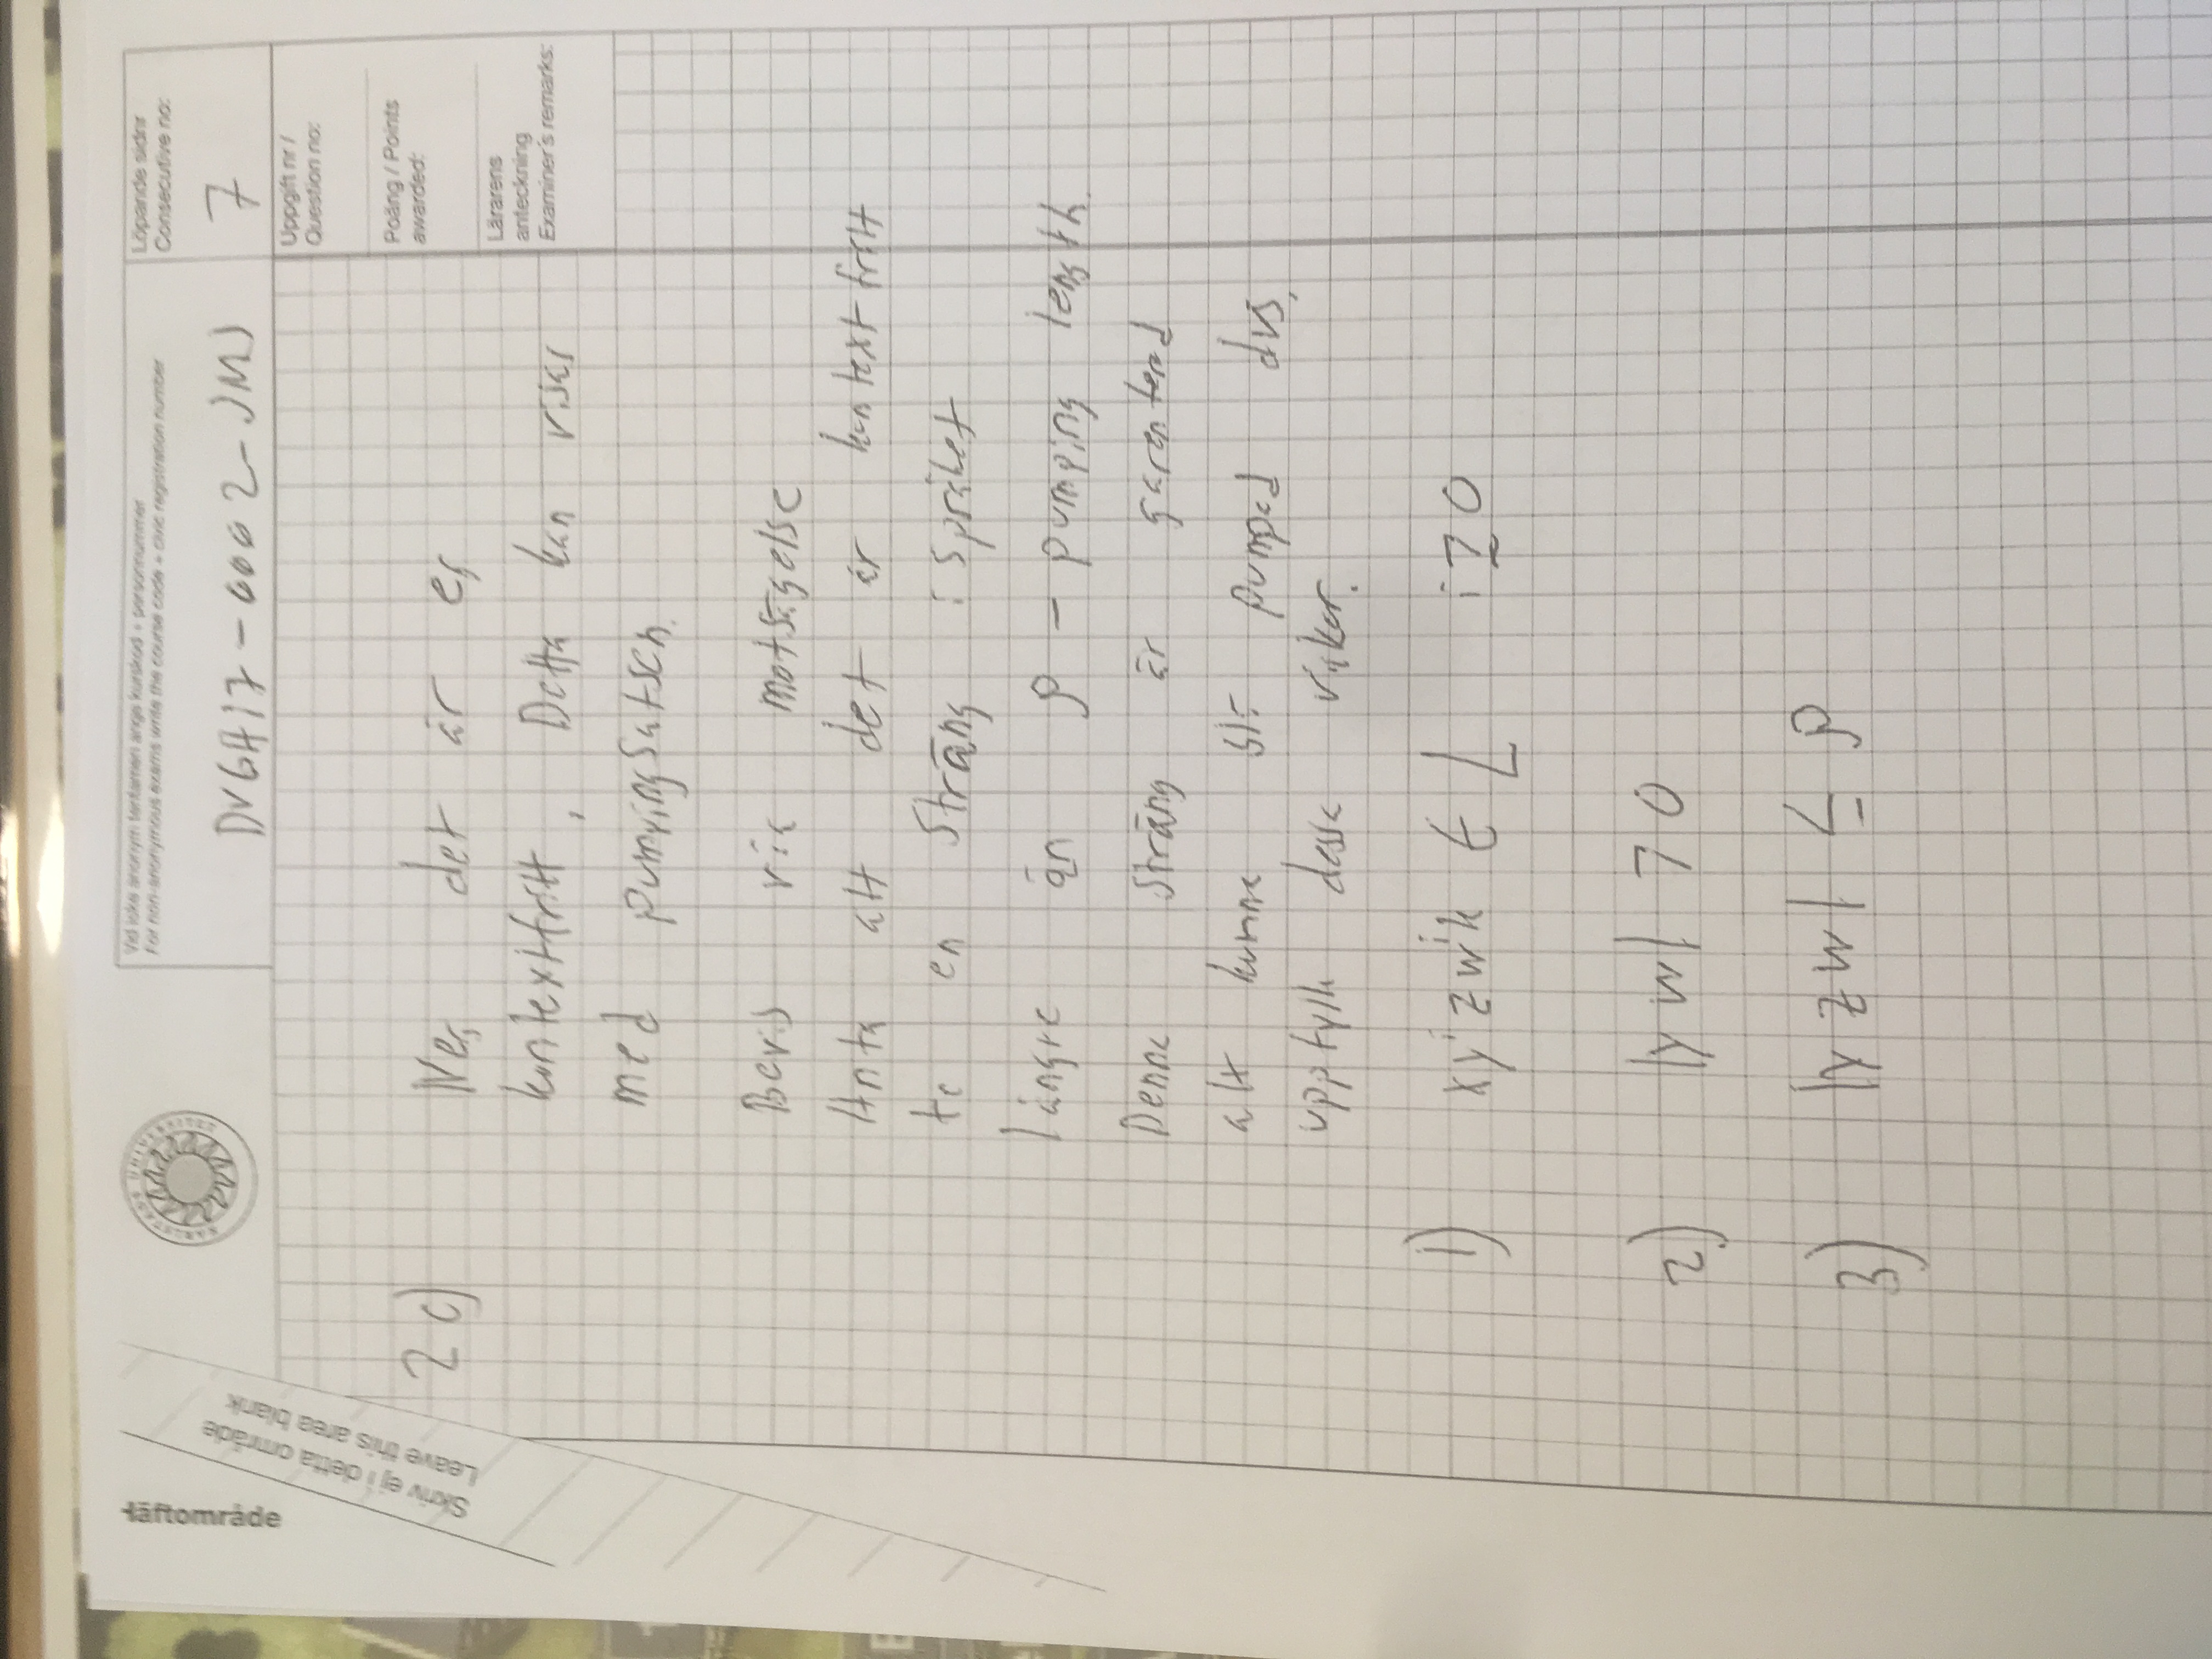 Häftområde
Skriv ej i detta område
Leave this area blank
KARLSTADS UNIVERSITET
Vid icke anonym tentamen ange kurskod + personnummer
For non-anonymous exams write the course code + civic registration number
DVGA17-0002-JMJ
Löpande sidnr
Consecutive no:
7
Uppgift nr /
Question no:
Poäng / Points
awarded:
Lärarens
anteckning
Examiner's remarks:
2c) Nej det är ej
kontextfritt, Detta kan visas
med pumpingsatsen.
Bevis via motsägelse
Anta att det är kontextfritt
ta en sträng i språket
längre än p - pumping length.
Denna sträng är garenterad
att kunna bli pumpad dvs,
uppfylla dessa vilkor.
1) xyⁱzwⁱk ∈ L i ≥ 0
2) |yw| > 0
3) |yzw| ≤ p